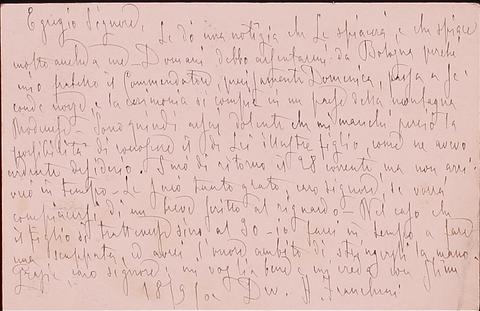 Egregio Signore,
Le dò una notizia che Le spiacerà e che spiace
molto anche a me – Domani debbo assentarmi da Bologna perché
mio fratello il Commendatore, precisamente Domenica, passa a se
conde nozze, e la cerimonia si compie in un paese della montagna
Modenese – Sono quindi assai dolente che mi manchi perciò la
possibilità di conoscere il di Lei illustre figlio, come ne avevo
ardente desiderio. Sarò di ritorno il 28 corrente ma non arri-
verò in tempo – Le sarò tanto grato caro signore, se vorrà
compiacersi di un breve scritto al riguardo – Nel caso che
il figlio si trattenesse sino al 30 – io sarei in tempo a fare
una scappata ed avrei l'onore ambito di stringergli la mano –
Grazie caro signore, mi voglia bene e mi creda con stima
18/9/ Dev.